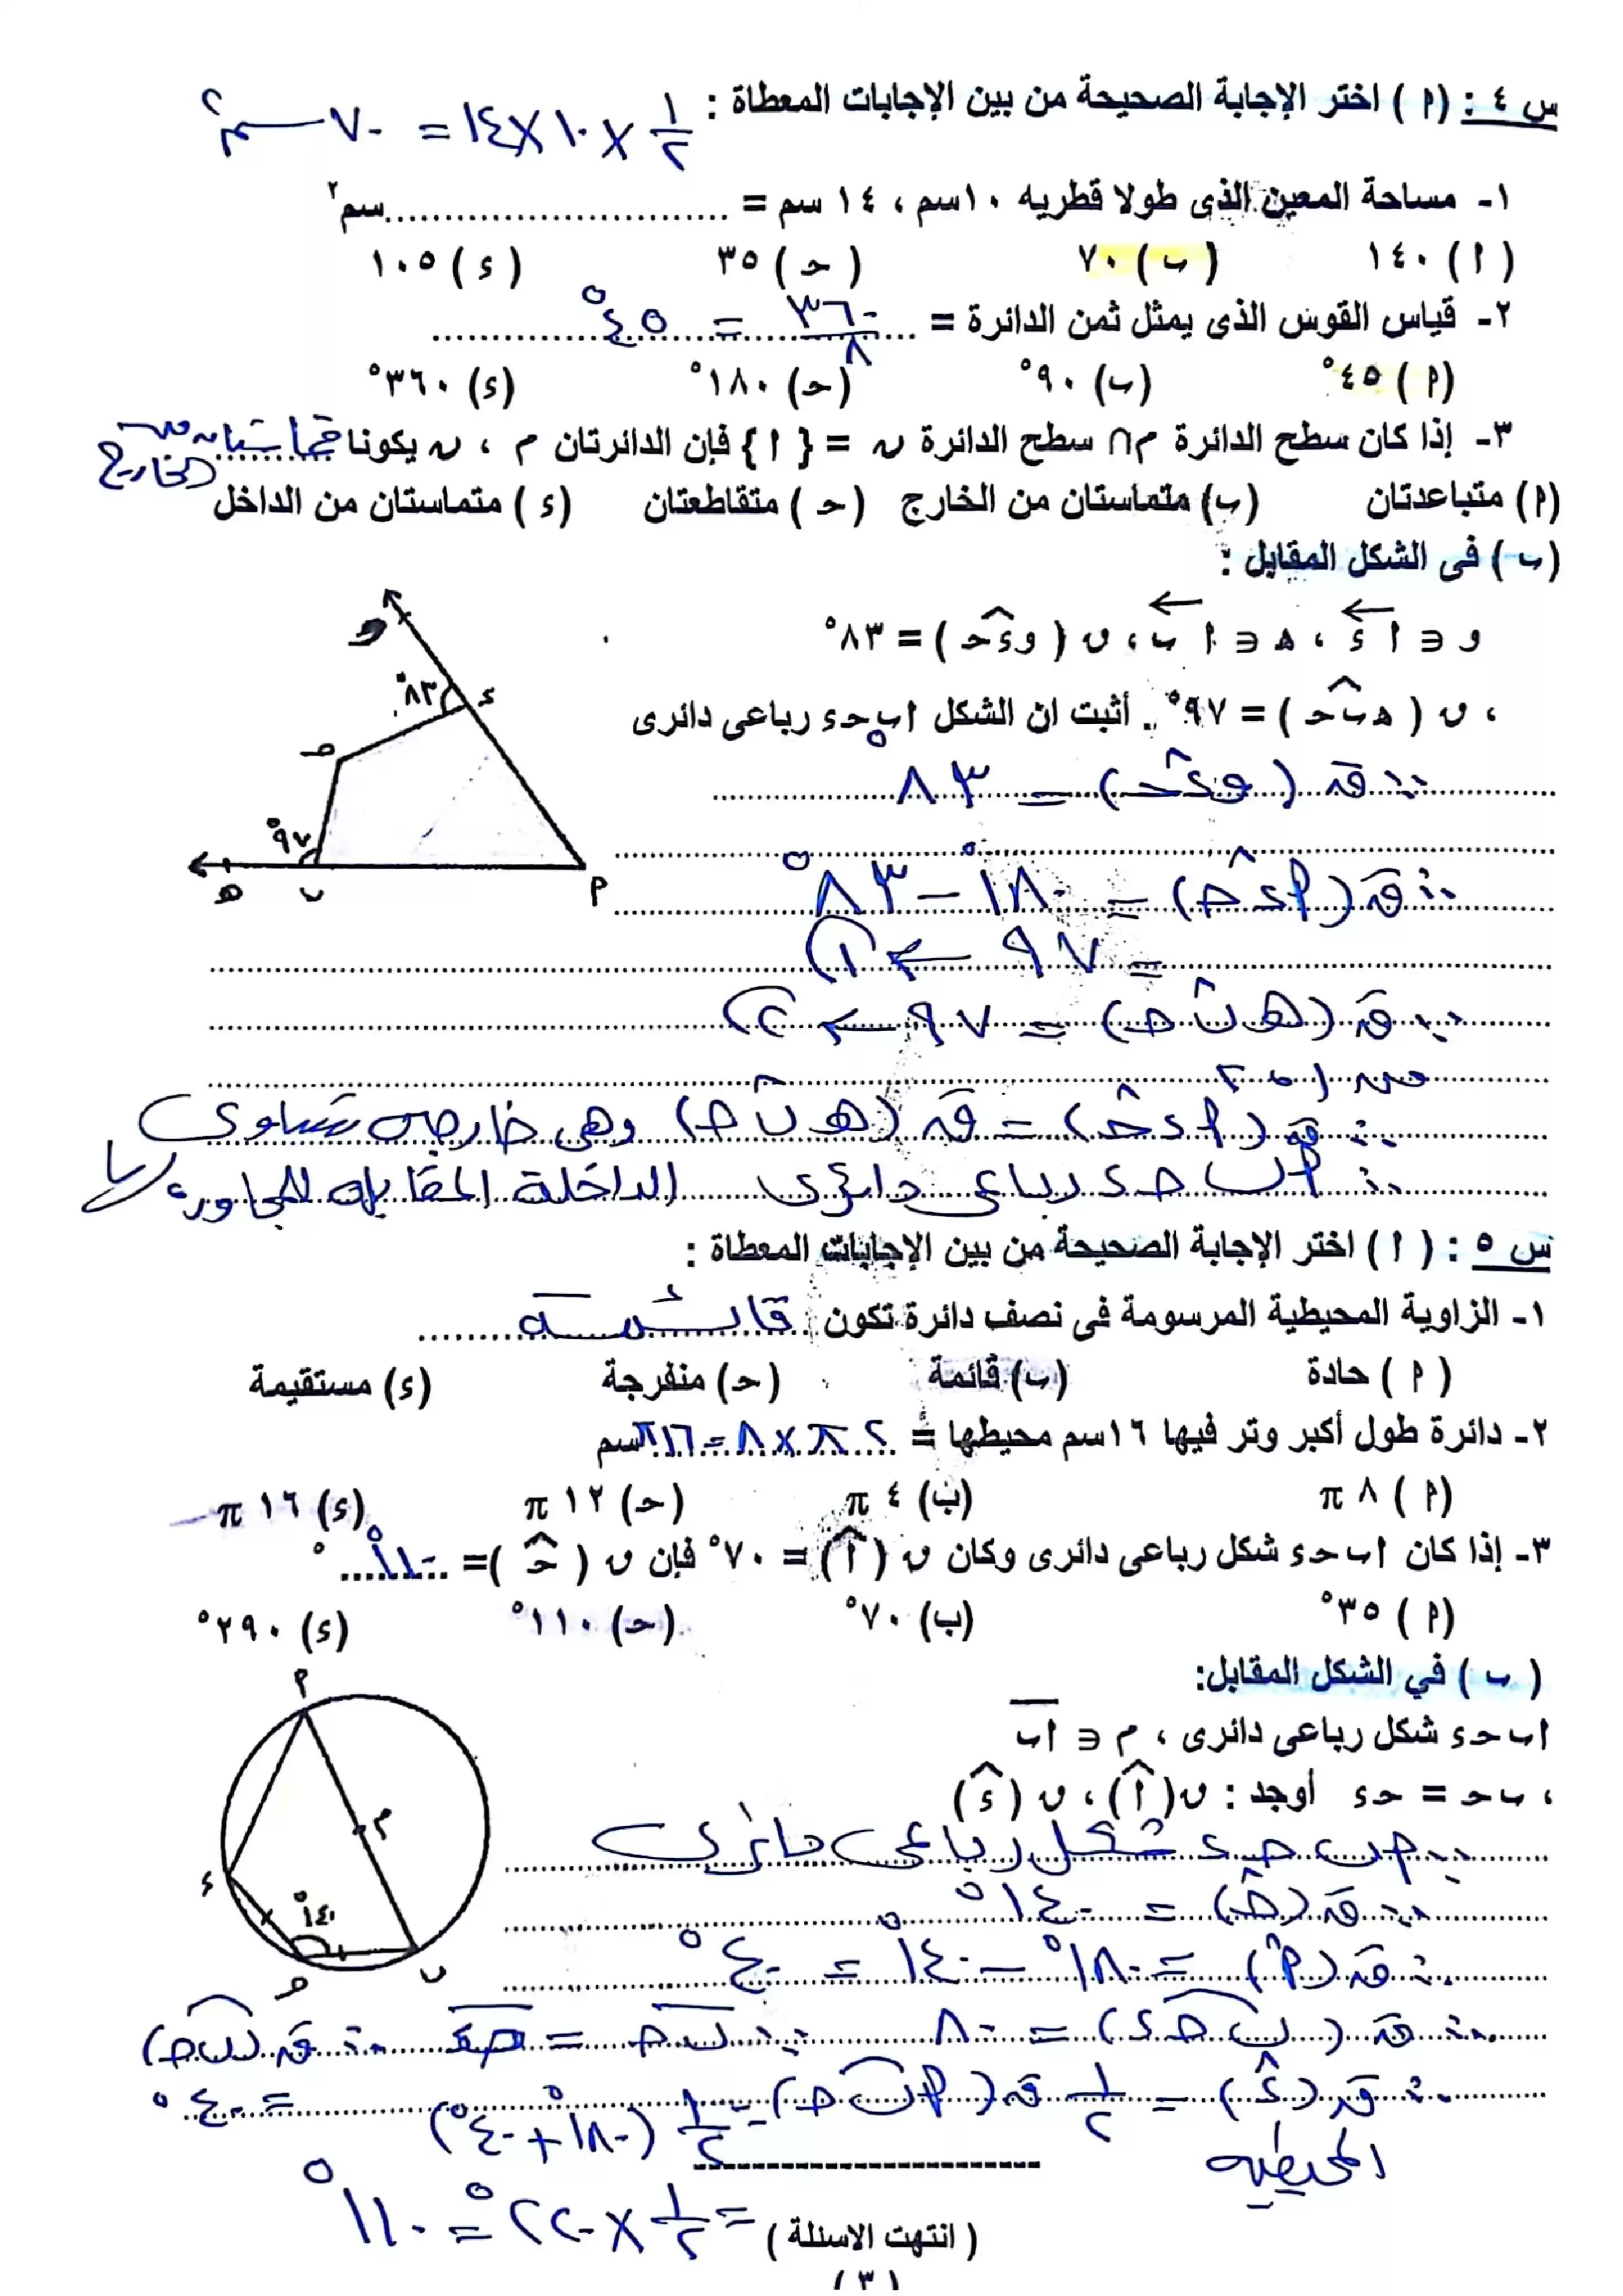 س ٤ : ( ا ) اختر الإجابة الصحيحة من بين الإجابات المعطاة :
١/٢ × ١٠ × ١٤ = ٧٠ سم٢
١- مساحة المعين الذى طولا قطريه ١٠سم ، ١٤ سم = ............................سم٢
( ا ) ١٤٠ ( ب ) ٧٠ ( حـ ) ٣٥ ( ء ) ١٠٥
٢- قياس القوس الذى يمثل ثمن الدائرة = ٣٦٠/٨ = ٤٥°
( ا ) ٤٥° (ب) ٩٠° (حـ) ١٨٠° (ء) ٣٦٠°
٣- إذا كان سطح الدائرة م ∩ سطح الدائرة ن = { ا } فإن الدائرتان م ، ن يكونا متماستان من الخارج
(ا) متباعدتان (ب) متماستان من الخارج (حـ) متقاطعتان (ء) متماستان من الداخل
(ب) فى الشكل المقابل :
و ∈ ا ء ، هـ ∈ ا ب ، ن ( و ء حـ ) = ٨٣°
، ن ( هـ ب حـ ) = ٩٧° . أثبت ان الشكل ا ب حـ ء رباعى دائرى
و
٨٣°
ء
حـ
٩٧°
هـ
ب
ا
∵ ق (و ء حـ) = ٨٣°
∴ ق (ا ء حـ) = ١٨٠° - ٨٣°
= ٩٧ ← ١
∵ ق (هـ ب حـ) = ٩٧ ← ٢
من ١ ، ٢
∴ ق (ا ء حـ) = ق (هـ ب حـ) وهى خارجه تساوى
الداخلة المقابله للمجاورة لها
∴ ا ب حـ ء رباعى دائرى
س ٥ : ( ا ) اختر الإجابة الصحيحة من بين الإجابات المعطاة :
١- الزاوية المحيطية المرسومة فى نصف دائرة تكون قائمة
( ا ) حادة (ب) قائمة (حـ) منفرجة (ء) مستقيمة
٢- دائرة طول أكبر وتر فيها ١٦سم محيطها = ٢ π × ٨ = ١٦ π سم
( ا ) ٨ π (ب) ٤ π (حـ) ١٢ π (ء) ١٦ π
٣- إذا كان ا ب حـ ء شكل رباعى دائرى وكان ن (ا) = ٧٠° فإن ن ( حـ ) = ١١٠°
( ا ) ٣٥° (ب) ٧٠° (حـ) ١١٠° (ء) ٢٩٠°
( ب ) في الشكل المقابل:
ا ب حـ ء شكل رباعى دائرى ، م ∈ ا ب
، ب حـ = حـ ء أوجد : ن(ا) ، ن (ء)
ا
م
ء
١٤٠°
حـ
ب
∵ ا ب حـ ء شكل رباعى دائرى
∵ ق (حـ) = ١٤٠°
∴ ق (ا) = ١٨٠° - ١٤٠ = ٤٠°
∴ ق (ب حـ ء) = ٨٠ ∵ ب حـ = حـ ء ∴ ق (ب حـ)
= ٤٠°
∴ ق (ء) = ١/٢ ق (ا ب حـ) = ١/٢ (١٨٠° + ٤٠°)
المحيطيه
= ١/٢ × ٢٢٠° = ١١٠°
( انتهت الاسئلة )
(٣)